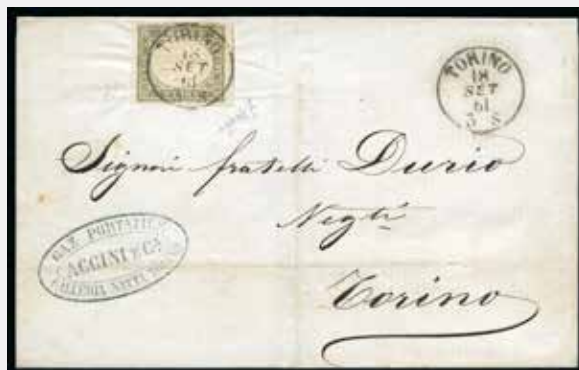 TORINO
18
SET
61
TORINO
18
SET
61
3 S
Signori fratelli Durio
Negti
Torino
GAZ PORTATILE